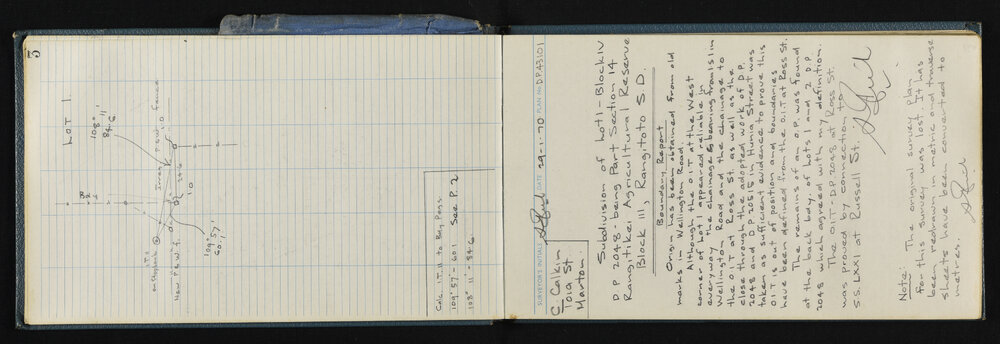 3
LOT 1
108° 11'
84.6
Iron
P & W fence
I.O
R
2
34.6
I.O
109° 57'
60.1
I.T. II
New P & W f.
Calc. I.T. II to Bdy Pegs.
109° 57' - 60.1 See P. 2
108° 11' - 84.6
SURVEYOR'S INITIALS DATE 29-1-70 PLAN No. DP 43101
C. Calkin
Toia St
Marton.
Subdivision of Lot 1 - Block IV
DP 2048 - being Part Section 14
Rangitikei Agricultural Reserve
Block III, Rangitoto S.D.
Boundary Report
Origin has been obtained from old
marks in Wellington Road.
Although the OIT at the West
corner of Lot 1 appeared reliable in
everyway the chainage & bearing from IS I in
Wellington Road and the chainage to
the OIT at Ross St. as well as the
close through the adopted work of DP.
2048 and DP 20515 in Hunia Street was
taken as sufficient evidence to prove this
OIT is out of position and boundaries
have been defined from the O.I.T. at Ross St.
The remains of an O.P. was found
at the back bdy. of Lots 1 and 2 D.P.
2048 which agreed with my definition.
The OIT - D.P. 2048 at Ross St.
was proved by connection to
S.S. LXXI at Russell St.
Note: The original survey plan
for this survey was lost. It has
been redrawn in metric and traverse
sheets have been converted to
metres.